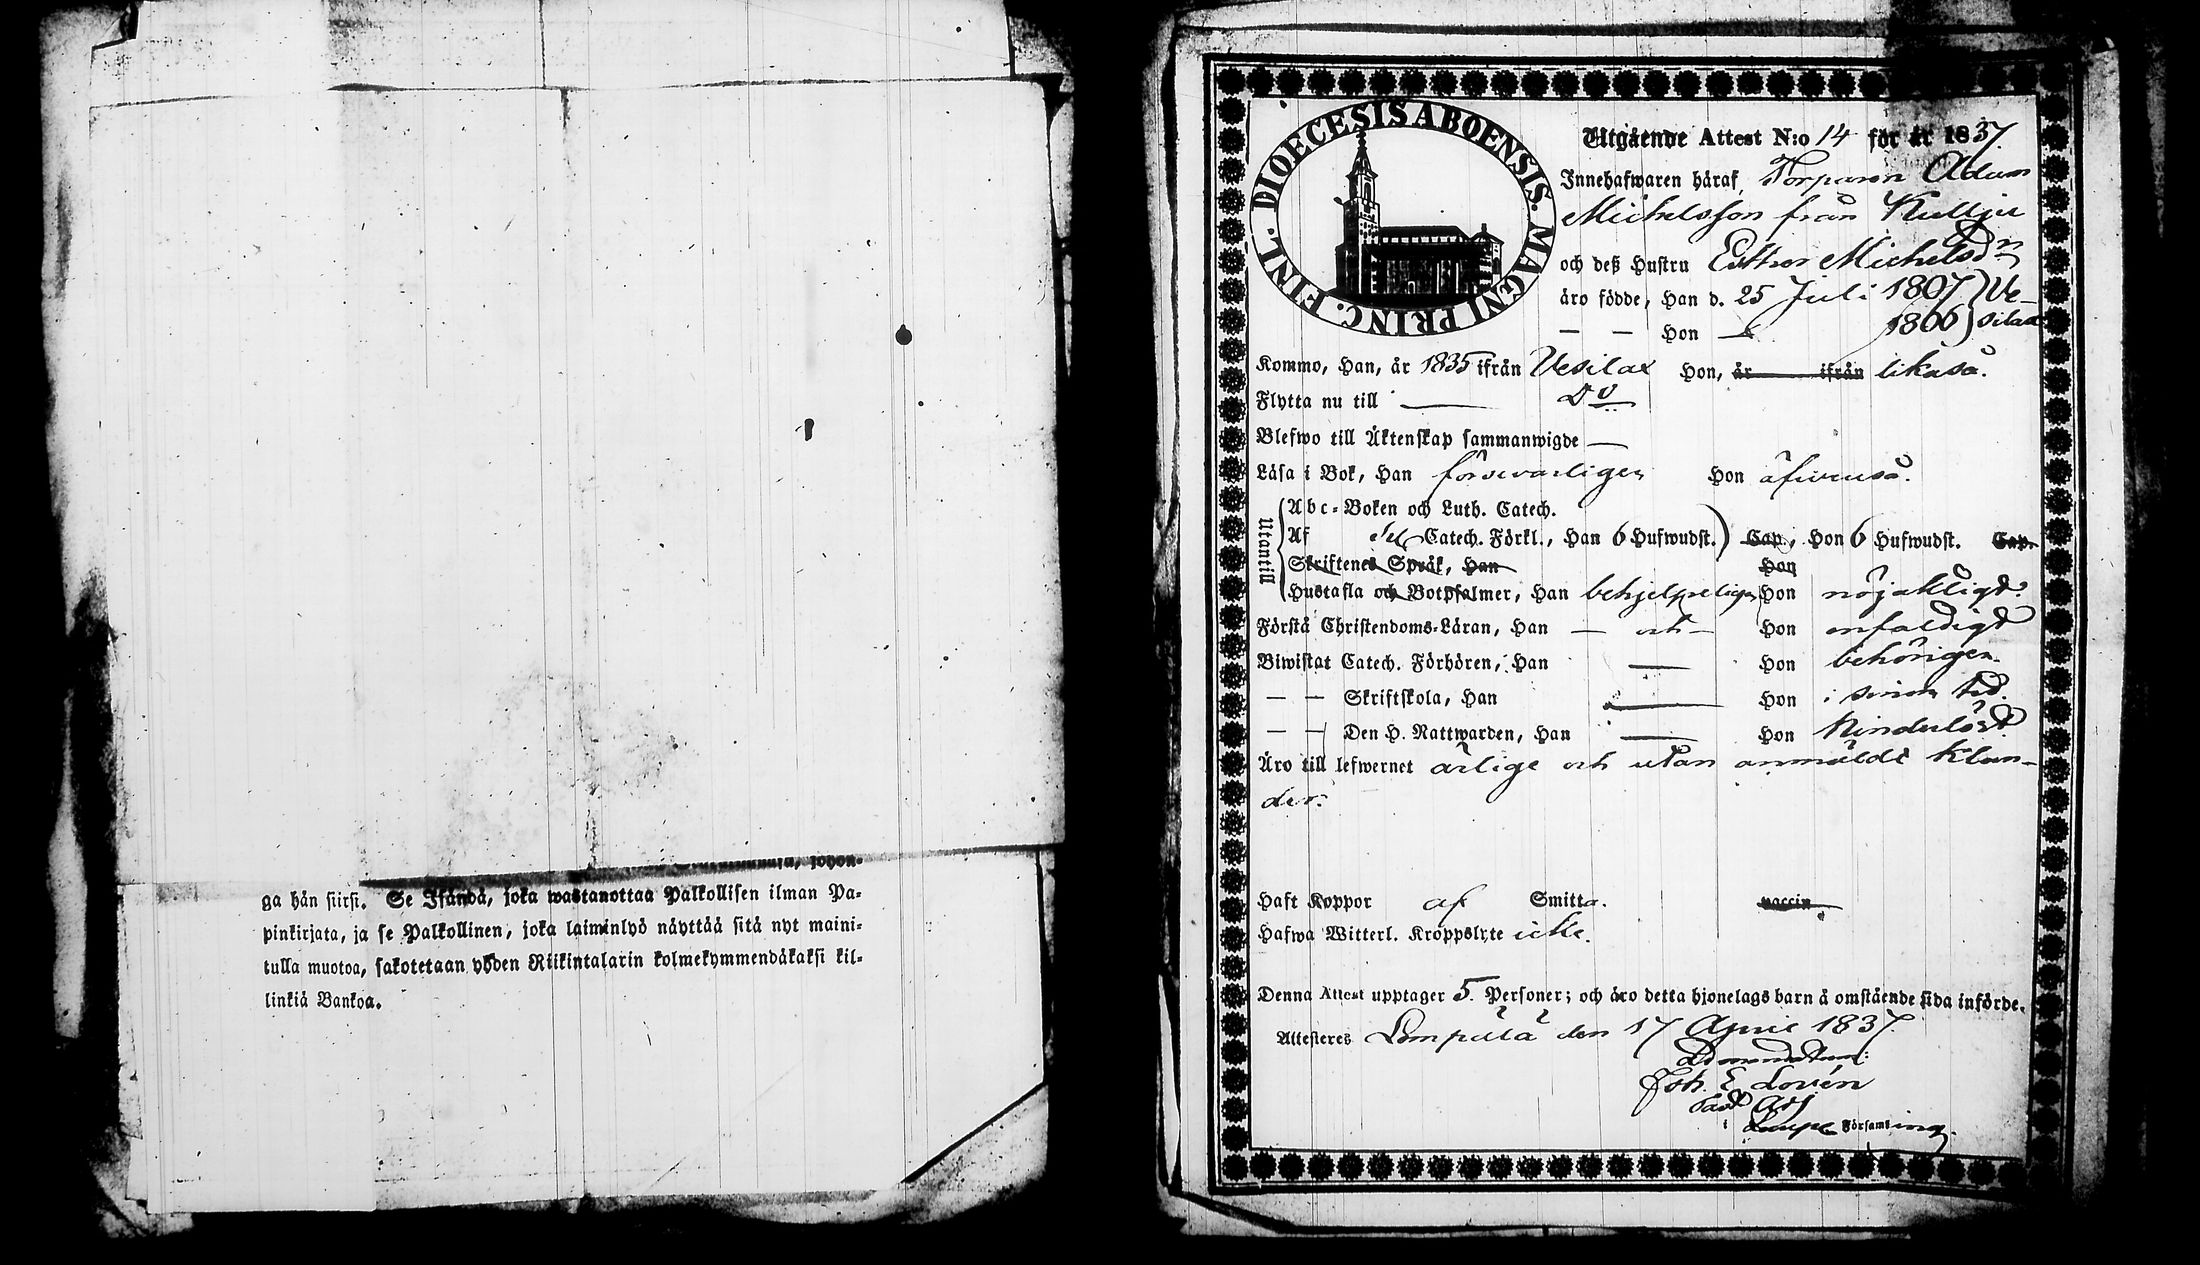 johon-
ga hän siirsi. Se Isändä, joka wastanottaa Palkollisen ilman Pa-
pinkirjata, ja se Palkollinen, joka laiminlyö näyttää sitä nyt maini-
tulla muotoa, sakotetaan yhden Riikintalarin kolmekymmendäkaksi kil-
linkiä Bankoa.
DIOECESIS ABOENSIS. MAGNI PRINC. FINL.
Utgående Attest N:o 14 för år 1837.
Innehafwaren häraf, Torparen Adam
Michelsson från Kulju
och deß Hustru Esther Michelsdr
äro födde, Han d. 25 Juli 1807 } Ve-
— — Hon — 1806 } silax
Kommo, Han, år 1835 ifrån Vesilax Hon, år ifrån likaså.
Flytta nu till — Do
Blefwo till Äktenskap sammanwigde —
Läsa i Bok, Han försvarligen Hon äfvenså.
Utantill
Abc-Boken och Luth. Catech.
Af Catech. Förkl., Han 6 Hufwudst. Cap., Hon 6 Hufwudst. Cap.
Skriftenes Språk, Han Hon
Hustafla och Botpsalmer, Han behjelpeligen Hon nöjakligt.
Förstå Christendoms-Läran, Han — och — Hon enfaldigt
Biwistat Catech. Förhören, Han — Hon behörigen.
— — Skriftskola, Han — Hon i sinom tid.
— — Den H. Nattwarden, Han — Hon hinderlöst
Äro till lefwernet ärlige och utan anmäldt klan-
der.
Haft Koppor af Smitta. vaccin
Hafwa Witterl. Kroppslyte icke.
Denna Attest upptager 5. Personer; och äro detta hjonelags barn å omstående sida införde.
Attesteres Lempälä den 17 April 1837.
Joh. E. Lovén
Past Adj
i Lempe Församling.